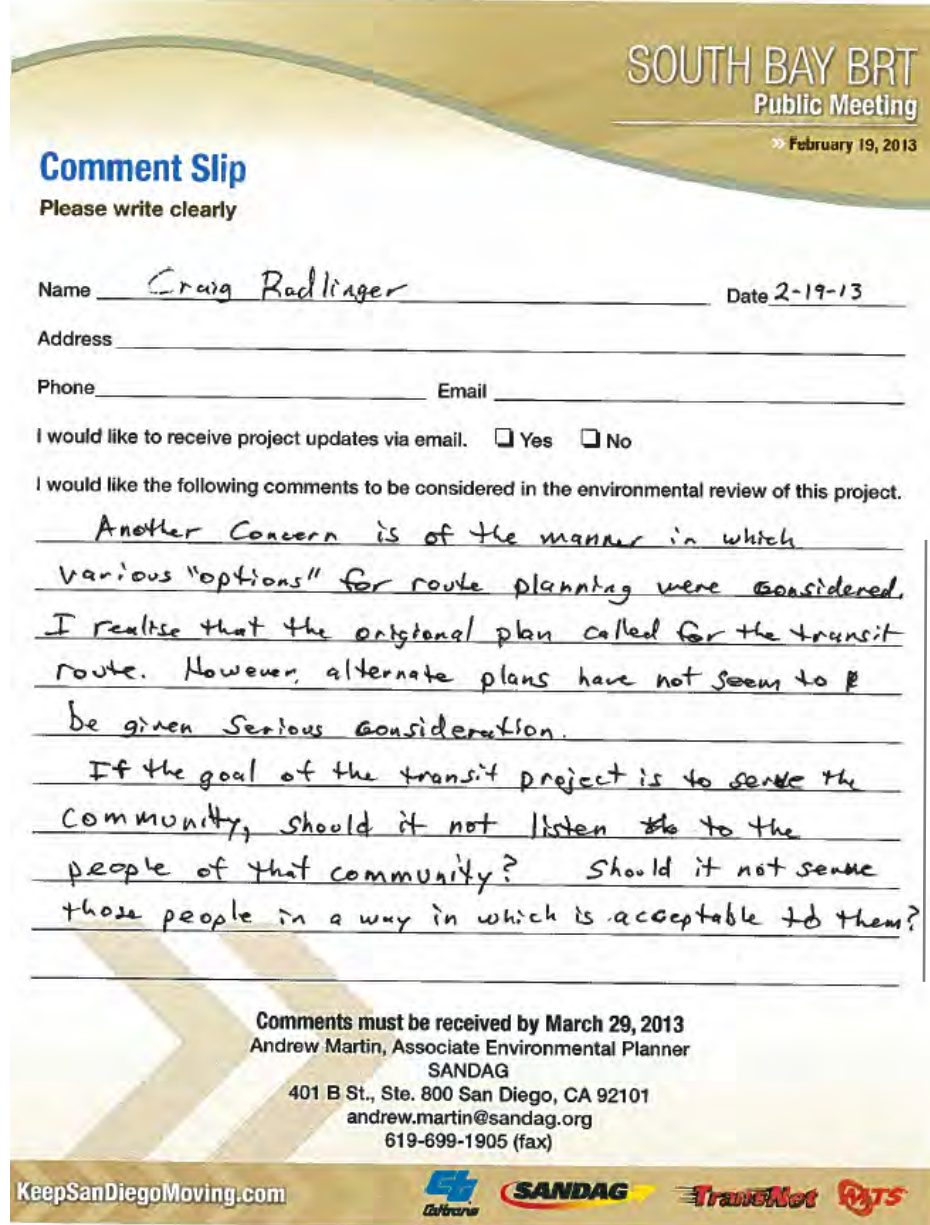 SOUTH BAY BRT
Public Meeting
» February 19, 2013
Comment Slip
Please write clearly
Name Craig Radlinger Date 2-19-13
Address
Phone Email
I would like to receive project updates via email. ❑ Yes ❑ No
I would like the following comments to be considered in the environmental review of this project.
Another Concern is of the manner in which
various "options" for route planning were considered.
I realise that the origional plan called for the transit
route. However, alternate plans have not seem to
be given Serious consideration.
If the goal of the transit project is to serve the
Community, should it not listen to the
people of that community? Should it not serve
those people in a way in which is acceptable to them?
Comments must be received by March 29, 2013
Andrew Martin, Associate Environmental Planner
SANDAG
401 B St., Ste. 800 San Diego, CA 92101
andrew.martin@sandag.org
619-699-1905 (fax)
KeepSanDiegoMoving.com Caltrans SANDAG TransNet MTS